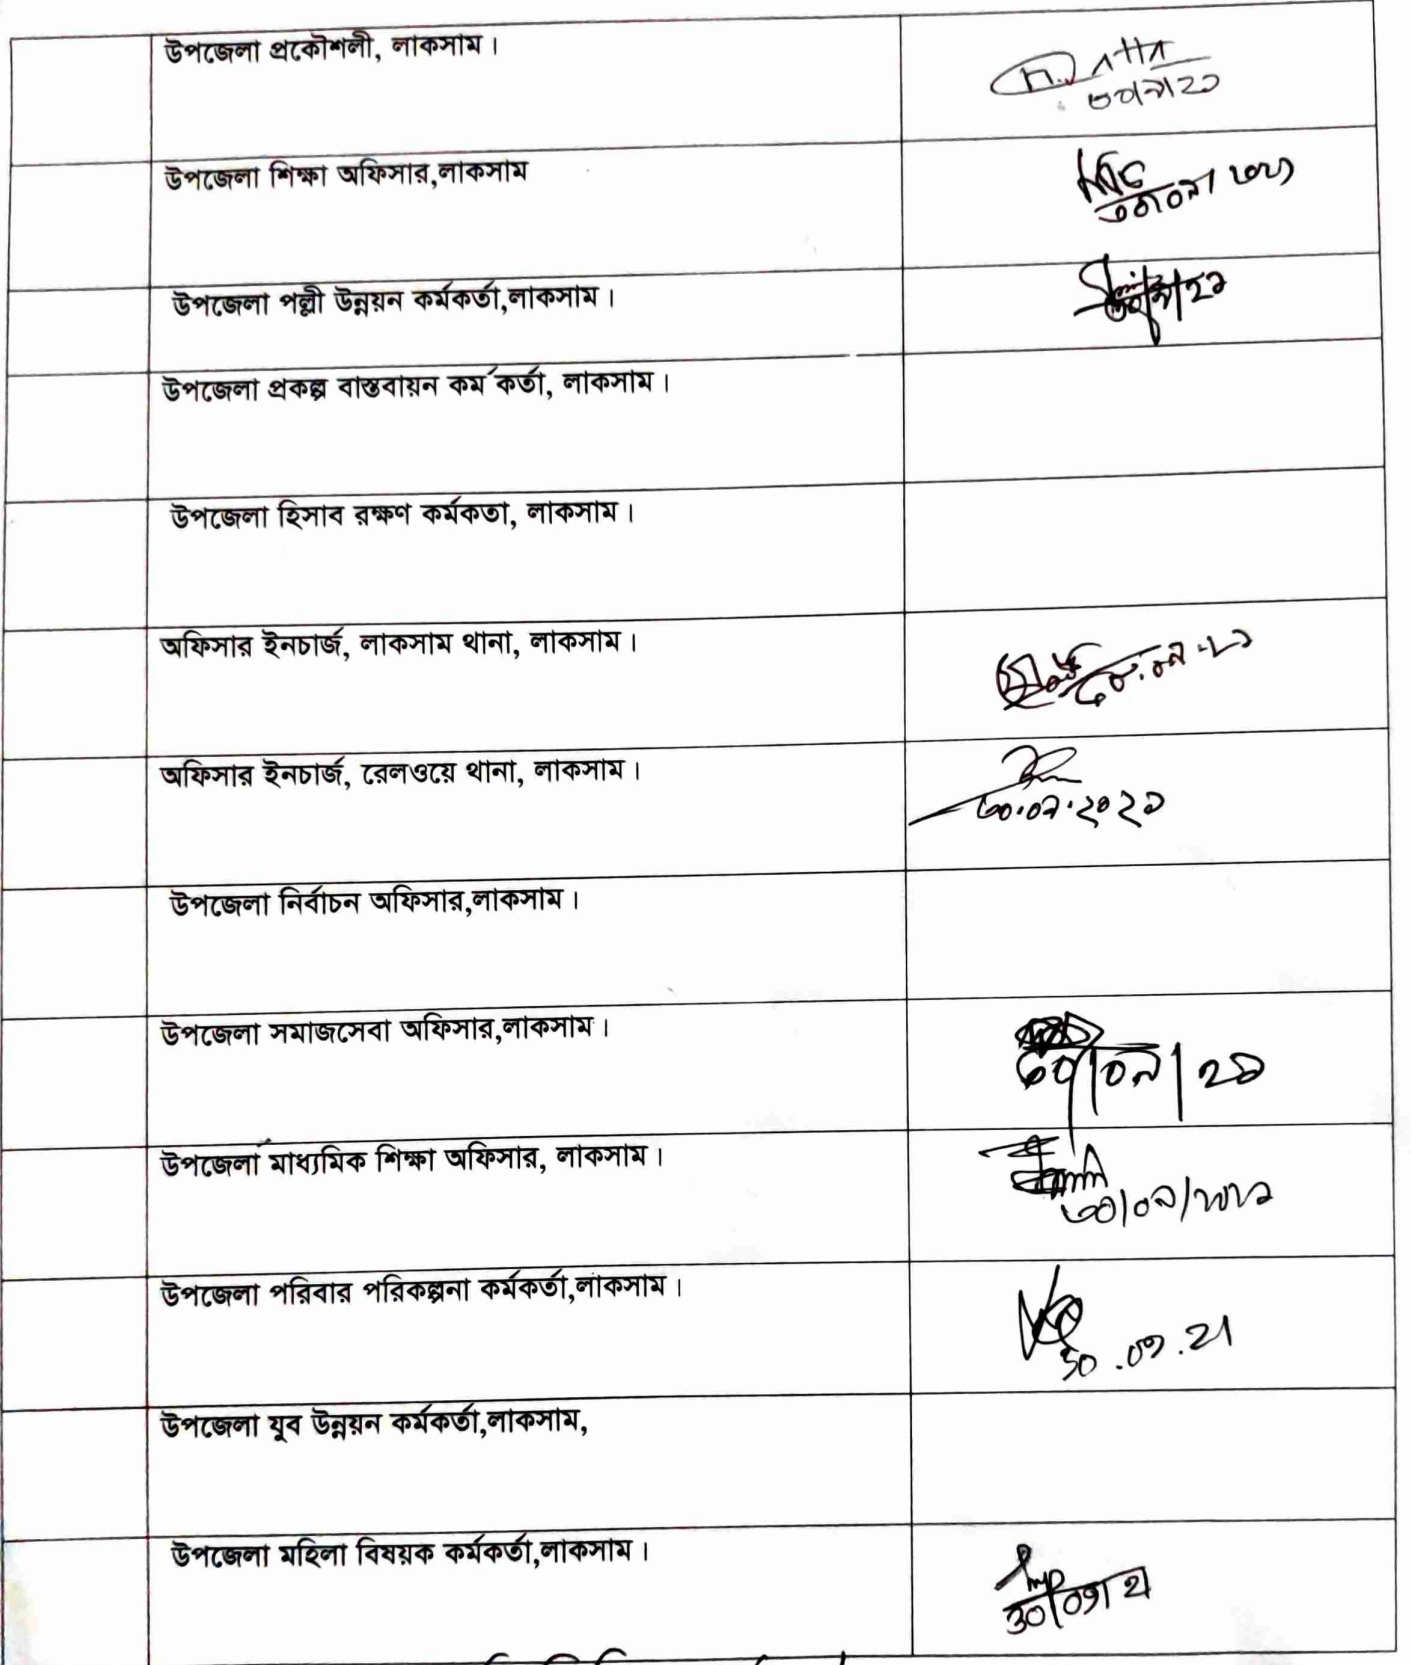 উপজেলা প্রকৌশলী, লাকসাম।
৩০/৯/২১
উপজেলা শিক্ষা অফিসার,লাকসাম
উপজেলা পল্লী উন্নয়ন কর্মকর্তা,লাকসাম।
উপজেলা প্রকল্প বাস্তবায়ন কর্ম কর্তা, লাকসাম।
উপজেলা হিসাব রক্ষণ কর্মকতা, লাকসাম।
অফিসার ইনচার্জ, লাকসাম থানা, লাকসাম।
অফিসার ইনচার্জ, রেলওয়ে থানা, লাকসাম।
৩০.০৯.২০২১
উপজেলা নির্বাচন অফিসার,লাকসাম।
উপজেলা সমাজসেবা অফিসার,লাকসাম।
৩০/০৯/২১
উপজেলা মাধ্যমিক শিক্ষা অফিসার, লাকসাম।
৩০/০৯/২০২১
উপজেলা পরিবার পরিকল্পনা কর্মকর্তা,লাকসাম।
30.09.21
উপজেলা যুব উন্নয়ন কর্মকর্তা,লাকসাম,
উপজেলা মহিলা বিষয়ক কর্মকর্তা,লাকসাম।
30/09/21